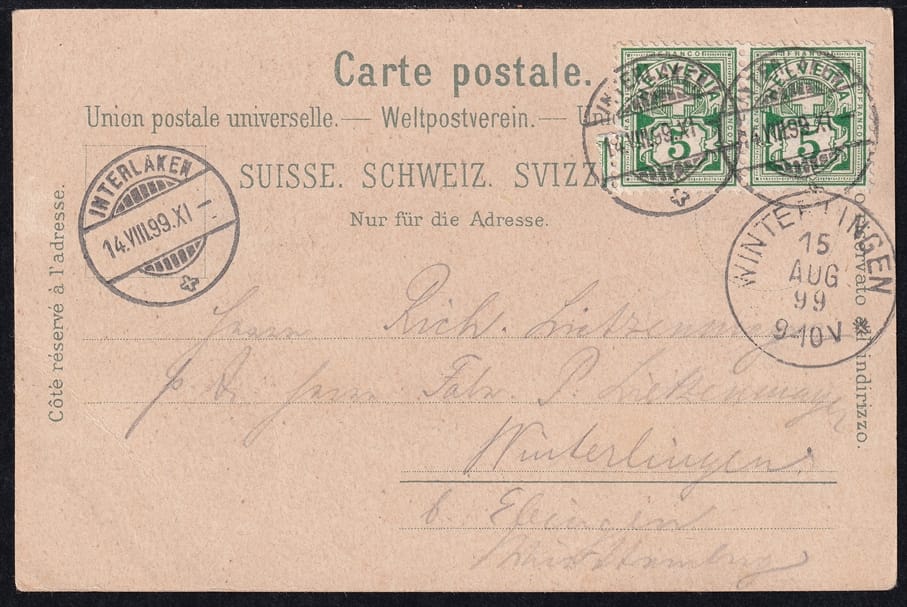 Carte postale.
Union postale universelle. — Weltpostverein. — U
SUISSE. SCHWEIZ. SVIZZ
Nur für die Adresse.
Côté réservé à l'adresse.
o riservato all indirizzo.
FRANCO
HELVETIA
5
FRANCO
HELVETIA
5
14.VIII.99.XI
14.VIII.99.XI
INTERLAKEN
14.VIII.99.XI –
WINTERLINGEN
15
AUG
99
9-10V
Herrn Rich.
Herrn Fabr. P.
Winterlingen
b. Ebingen
Württemberg